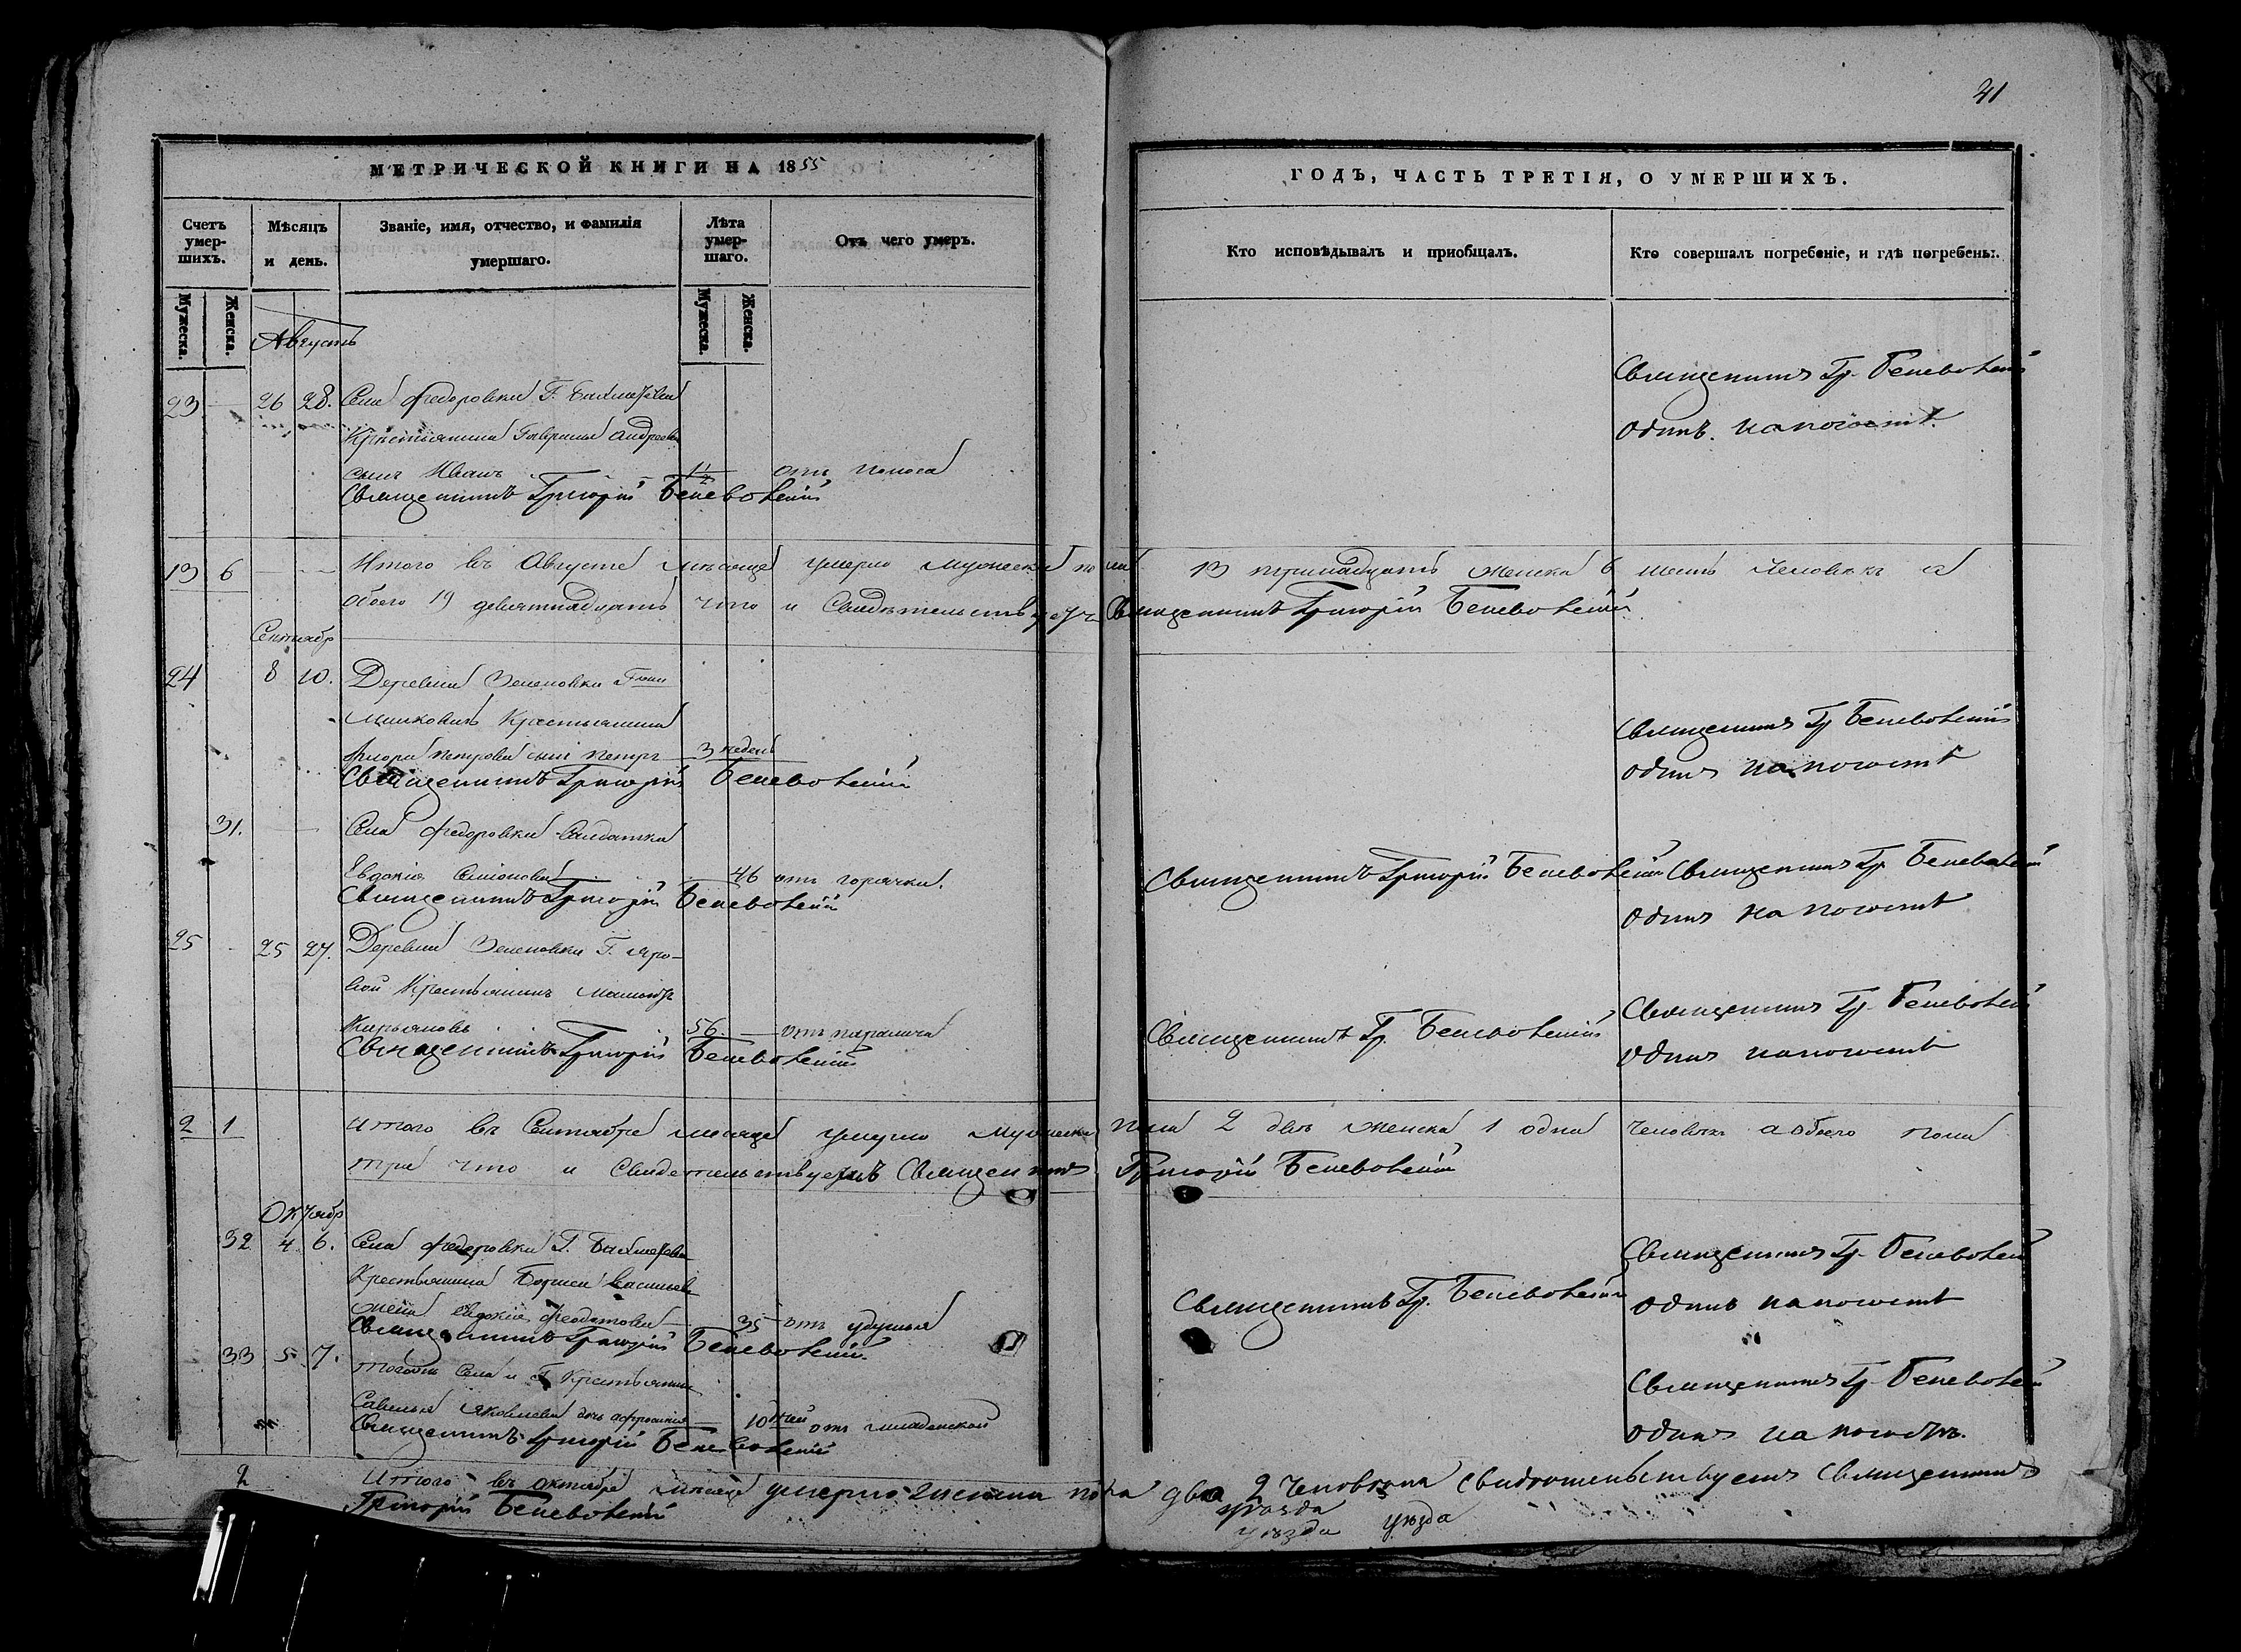 41
МЕТРИЧЕСКОЙ КНИГИ НА 1855
ГОДЪ, ЧАСТЬ ТРЕТІЯ, О УМЕРШИХЪ.
Счетъ умер-шихъ.
Мѣсяцъ и день.
Званіе, имя, отчество, и фамилія умершаго.
Лѣта умер-шаго.
Отъ чего умеръ.
Кто исповѣдывалъ и пріобщалъ.
Кто совершалъ погребеніе, и гдѣ погребены.
Мужеска.
Женска.
Мужеска.
Женска.
Августъ
23 26 28. Села Федоровки Г.
Крестьянина Гавриила Андреева
сынъ Иванъ отъ поноса
Священникъ Григорій Беневоленскій
Священникъ Гр. Беневоленскій
одинъ. на погостѣ.
13 6 Итого въ Августѣ мѣсяцѣ умерло мужеска пола 13 тринадцать женска 6 шесть человѣкъ а
обоего 19 девятнадцать что и свидѣтельствуетъ Священникъ Григорій Беневоленскій
Сентябр
24 8 10. Деревни Зеленовки
Крестьянина
Петрова сынъ Петръ 3 недел
Священникъ Григорій Беневоленскій
Священникъ Гр Беневоленскій
одинъ на погостѣ
31. Села Федоровки Салдатка
Евдокія 46 отъ горячки.
Священникъ Григорій Беневоленскій
Священникъ Григорій Беневоленскій
Священникъ Гр Беневоленскій
одинъ на погостѣ
25 25 27. Деревни Зеленовки Г. Яро-
вой Крестьянинъ
56. отъ паралича
Священникъ Григорій Беневоленскій
Священникъ Гр. Беневоленскій
Священникъ Гр. Беневоленскій
одинъ на погостѣ
2 1 Итого въ Сентябре месяце умерло мужеска пола 2 два женска 1 одна человекъ а обоего пола
три что и свидетельствуетъ Священникъ Григорій Беневоленскій
Октябр
32 4 6. Села Федоровки Г.
Крестьянина Бориса Васильева
жена Евдокія Феодотова 35 отъ удушья
Священникъ Григорій Беневоленскій
Священникъ Гр. Беневоленскій
Священникъ Гр. Беневоленскій
одинъ на погостѣ
33 5 7. тогожъ Села и Г Крестьянина
Савелья Яковлева дочь 10 отъ младенской
Священникъ Григорій Беневоленскій
Священникъ Гр. Беневоленскій
одинъ на погостѣ.
2 Итого въ октябрѣ мѣсяцѣ умерло женска пола два 2 человѣка свидѣтельствуетъ Священникъ
Григорій Беневоленскій
уѣзда
уѣзда